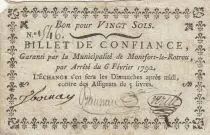 Bon pour VINGT SOLS.
N.º 546.
BILLET DE CONFIANCE,
Garanti par la Municipalité de Montfort-le-Rotrou,
par Arrêté du 6 Février 1792.
L'ÉCHANGE s'en fera les Dimanches après midi,
contre des Assignats de 5 livres.